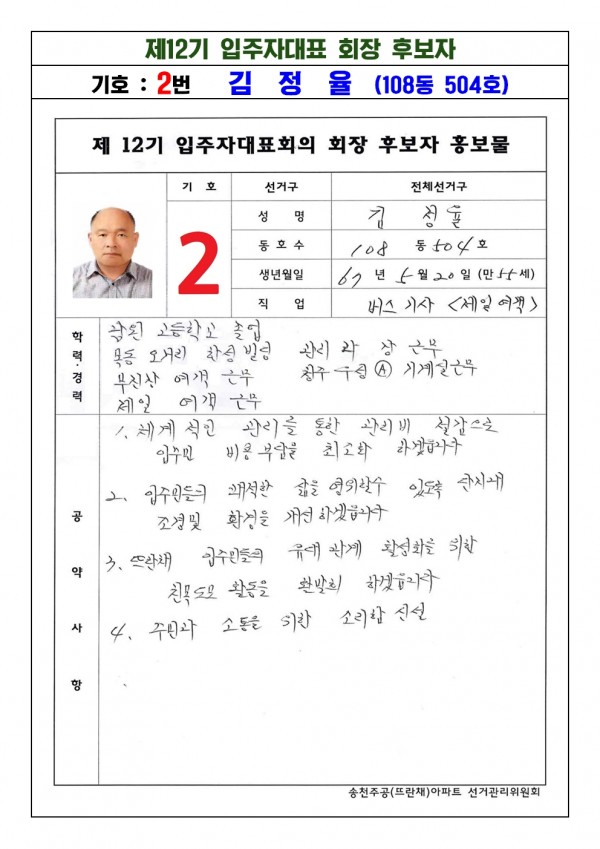 제12기 입주자대표 회장 후보자
기호 : 2번 김 정 율 (108동 504호)
제 12기 입주자대표회의 회장 후보자 홍보물
기 호 선거구 전체선거구
2
성 명 김 정율
동 호 수 108 동 504 호
생년월일 67 년 5 월 20 일 (만 55 세)
직 업 버스 기사 <제일 여객>
학력·경력
남원 고등학교 졸업
목동 오거리 한성빌딩 관리 과장 근무
부진산 여객 근무 청주 수성 Ⓐ 기계설근무
제일 여객 근무
공약사항
1. 체계 적인 관리를 통한 관리비 절감으로
입주민 비용부담을 최소화 하겠습니다
2. 입주민들의 쾌적한 삶을 영위할수 있도록 단지내
조경및 환경을 개선하겠습니다
3. 뜨란채 입주민들의 유대 관계 활성화를 위한
친목도모 활동을 활발히 하겠습니다
4. 주민과 소통을 위한 소리함 신설
송천주공(뜨란채)아파트 선거관리위원회